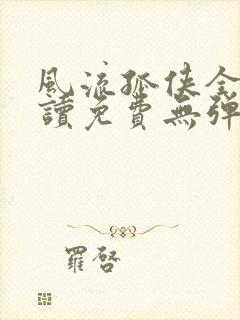 風流孤俠全
讀免費無彈
羅啓